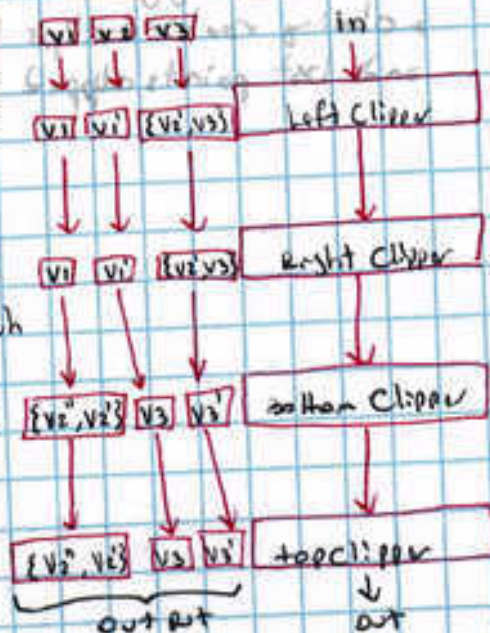 V1 V2 V3 in
V1 V1' {V2',V3} Left Clipper
V1 V1' {V2',V3} Right Clipper
{V2'',V2'} V3 V3' bottom Clipper
{V2'',V2'} V3 V3' top clipper
out put out